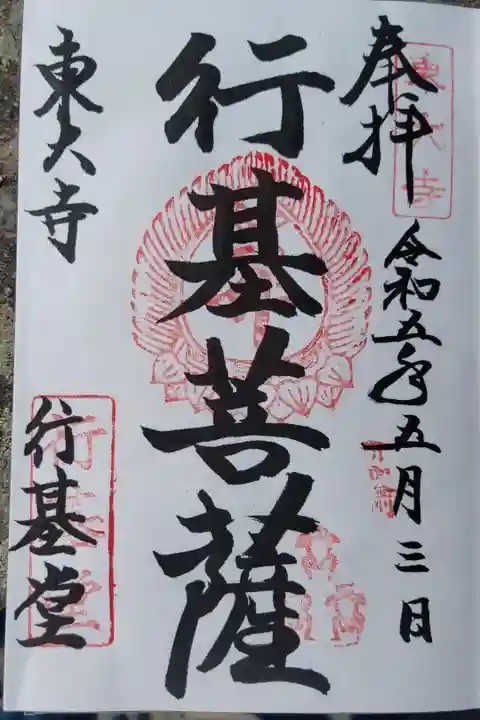 奉拝
東大寺
令和五年五月三日
行基菩薩
東大寺
行基堂
行基堂